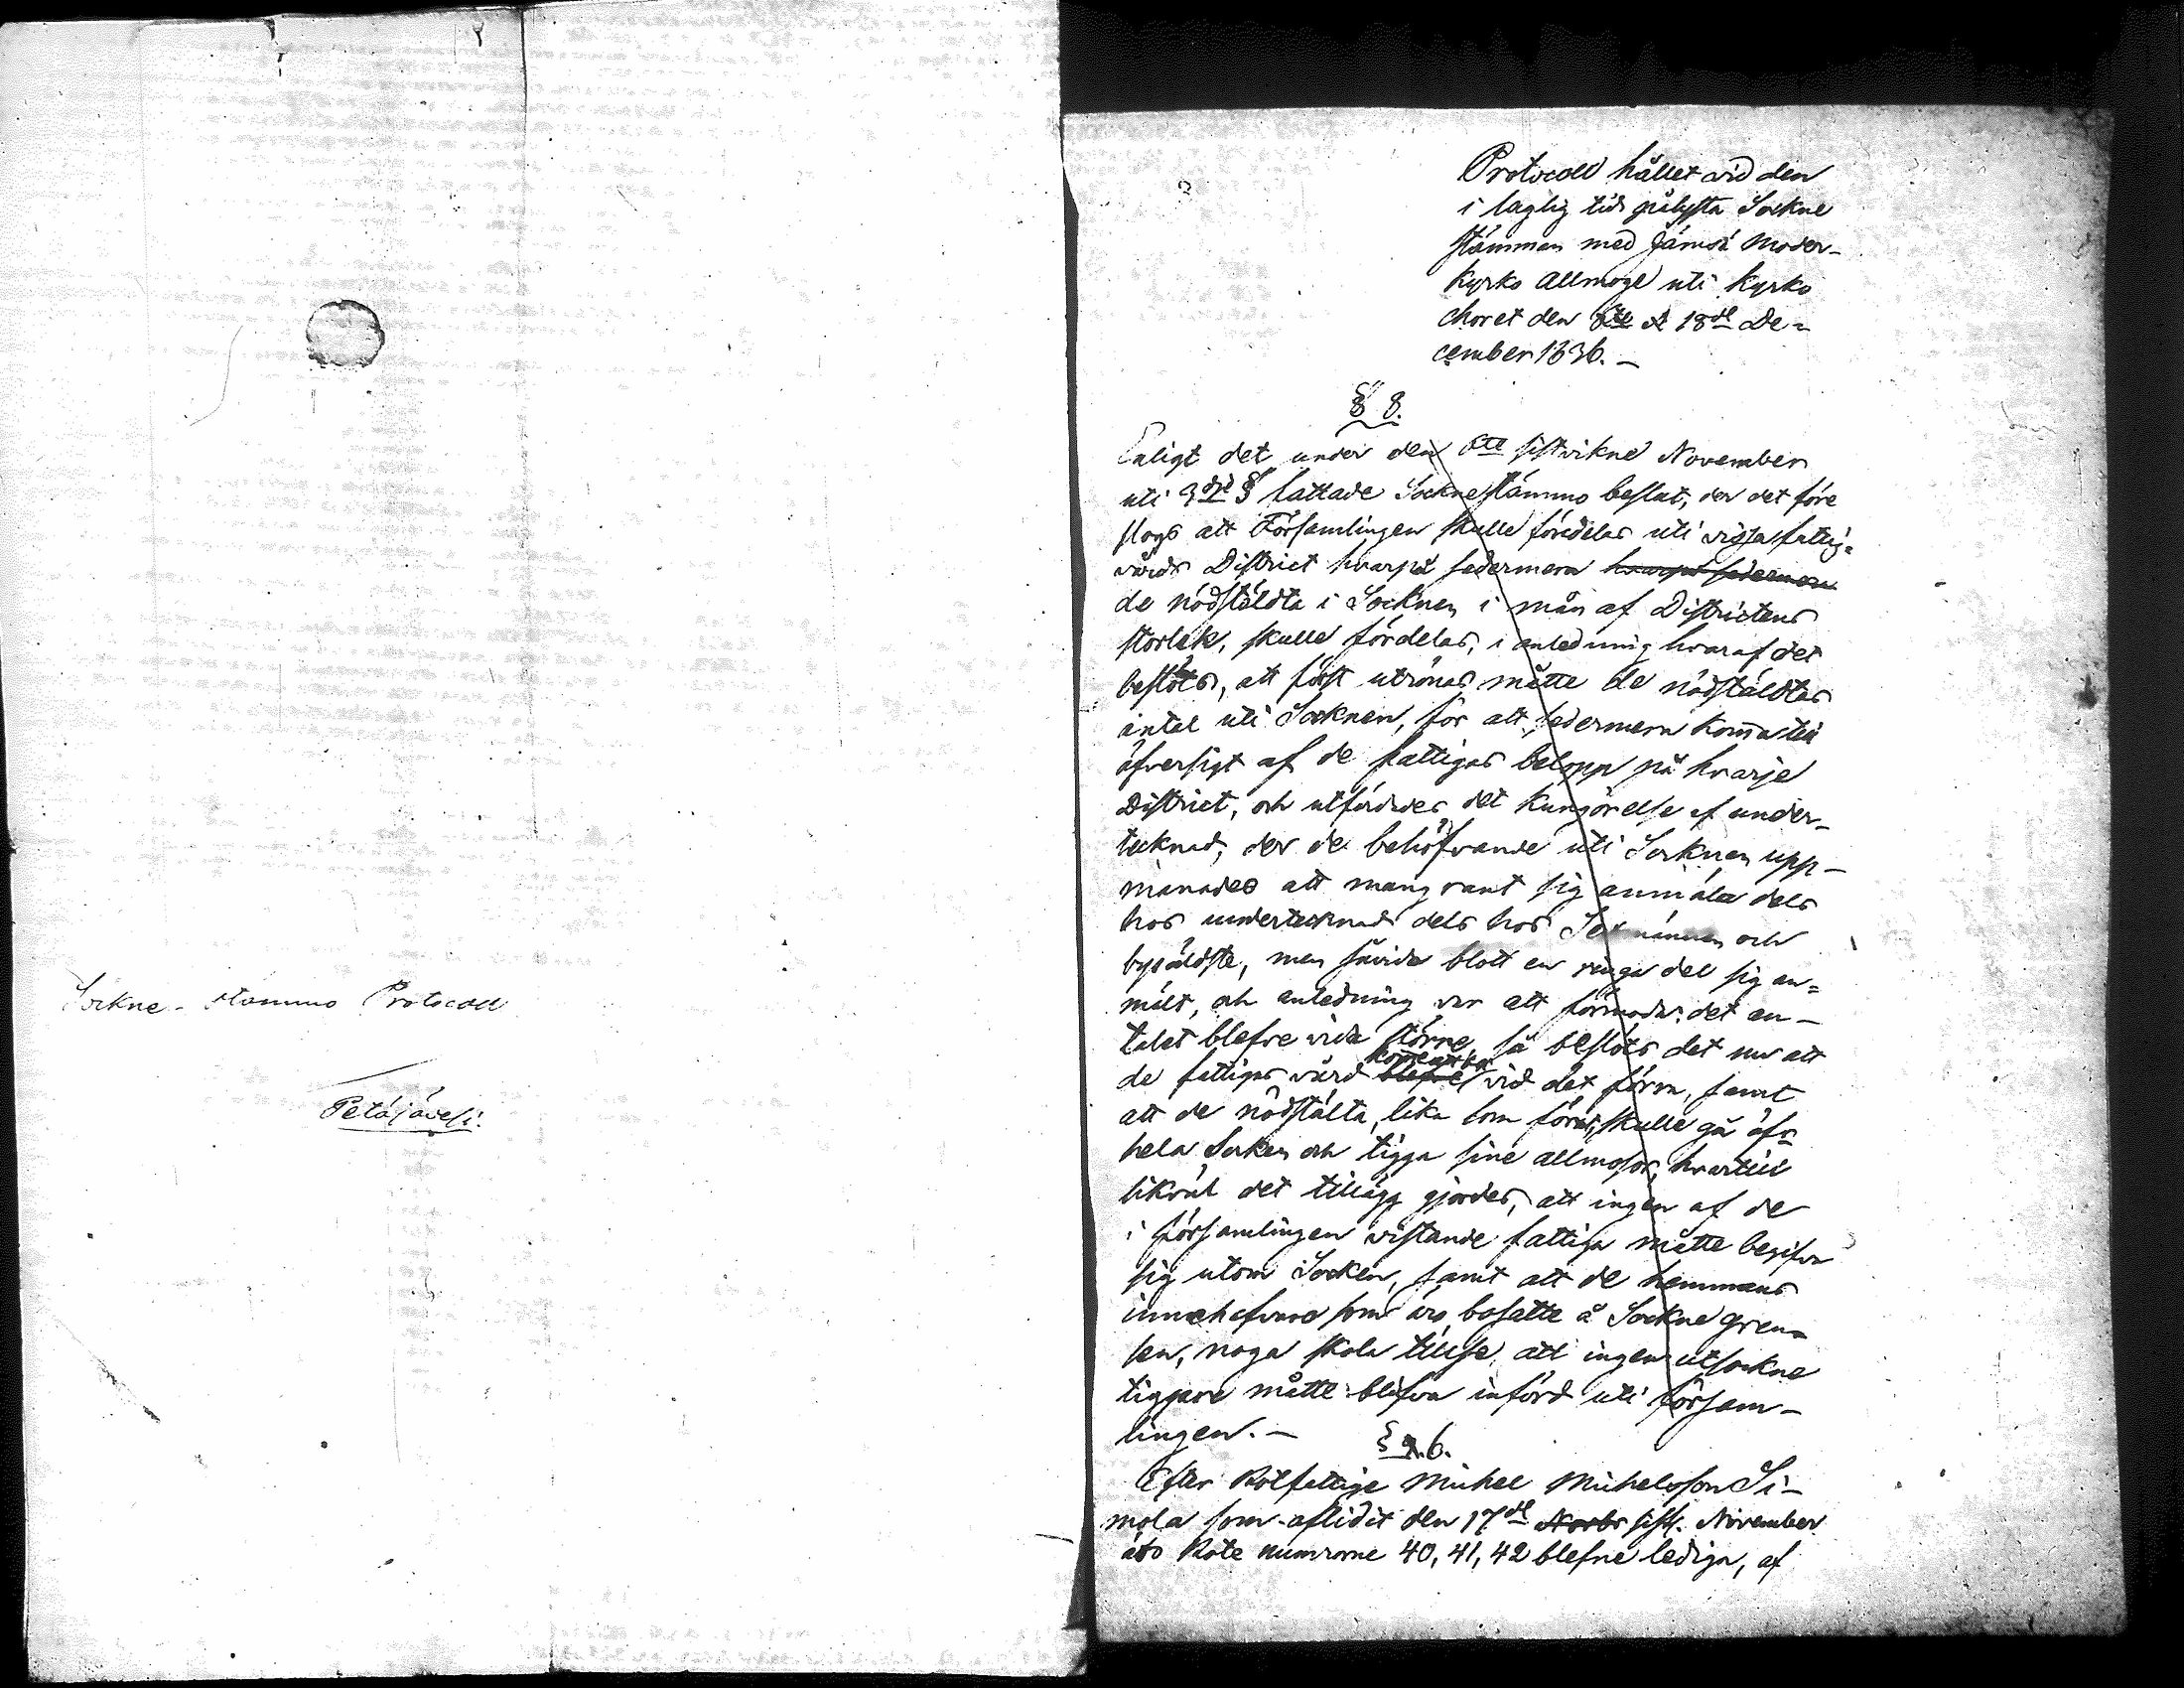 Sockne-stämmo Protocoll
Petäjävesi.
Protocoll hållet vid den
i laglig tid pålysta Sockne
stämman med Jämsä Moder-
kyrko Allmoge uti kyrko
choret den 18de De-
cember 1836.-
§ 8.
Enligt det under den 6te sistvikne November
uti 3dje § fattade Sockne stämmo beslut, der det före
slogs att Församlingen skulle fördelas uti vissa fattig-
vårds District hvarpå sedermera hvarpå sedermera
de nödstäldta i Socknen i mån af Districtens
storlek, skulle fördelas, i anledning hvaraf det
beslöts, att först utrönas måtte de nödstäldtas
antal uti Socknen, för att sedermera komma till
öfversigt af de fattigas belopp på hvarje
District, och utfärdades det Kungörelse af under-
tecknad, der de behöfvande uti Socknen upp-
manades att mangrant sig anmäla dels
hos undertecknad dels hos Sexmännen och
byäldste, men såvida blott en ringa del sig an-
mält, och anledning var att förmoda det an-
talet blefve vida större, så beslöts det nu att
de fattigas vård blefve vid det förra, samt
att de nödstälta, lika som förut, skulle gå öfr
hela Socken och tigga sine allmosor, hvartill
likväl det tillägg gjordes, att ingen af de
i församlingen vistande fattiga måtte begifva
sig utom Socken, samt att de hemmans
innehafvare som äro bosatte å Sockne gren-
sen, noga skola tillse att ingen utsockne
tiggare måtte blifva införd uti försam-
lingen.-
§ 6.
Efter Rotfattige Michel Michelsson Si-
mola som aflidit den 17de Novbr sistl. November
äro Rote numrorne 40, 41, 42 blefne lediga, af